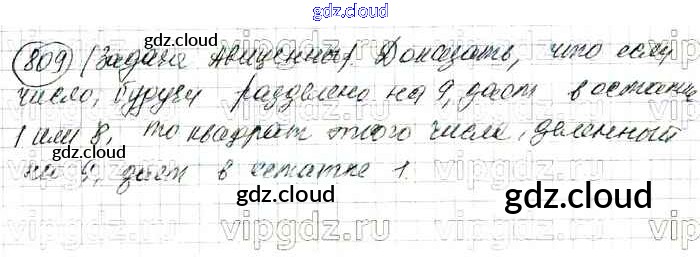 gdz.cloud
809 (Задача Авиценны) Доказать, что если
число, будучи разделено на 9, дает в остатке
1 или 8, то квадрат этого числа, деленный
на 9, дает в остатке 1.
gdz.cloud
gdz.cloud
gdz.cloud
gdz.cloud
vipgdz.ru
vipgdz.ru
vipgdz.ru
vipgdz.ru